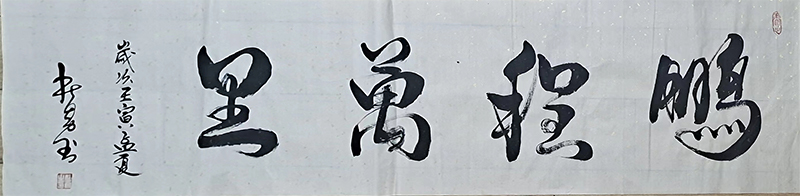 鹏程萬里
歲次壬寅孟夏